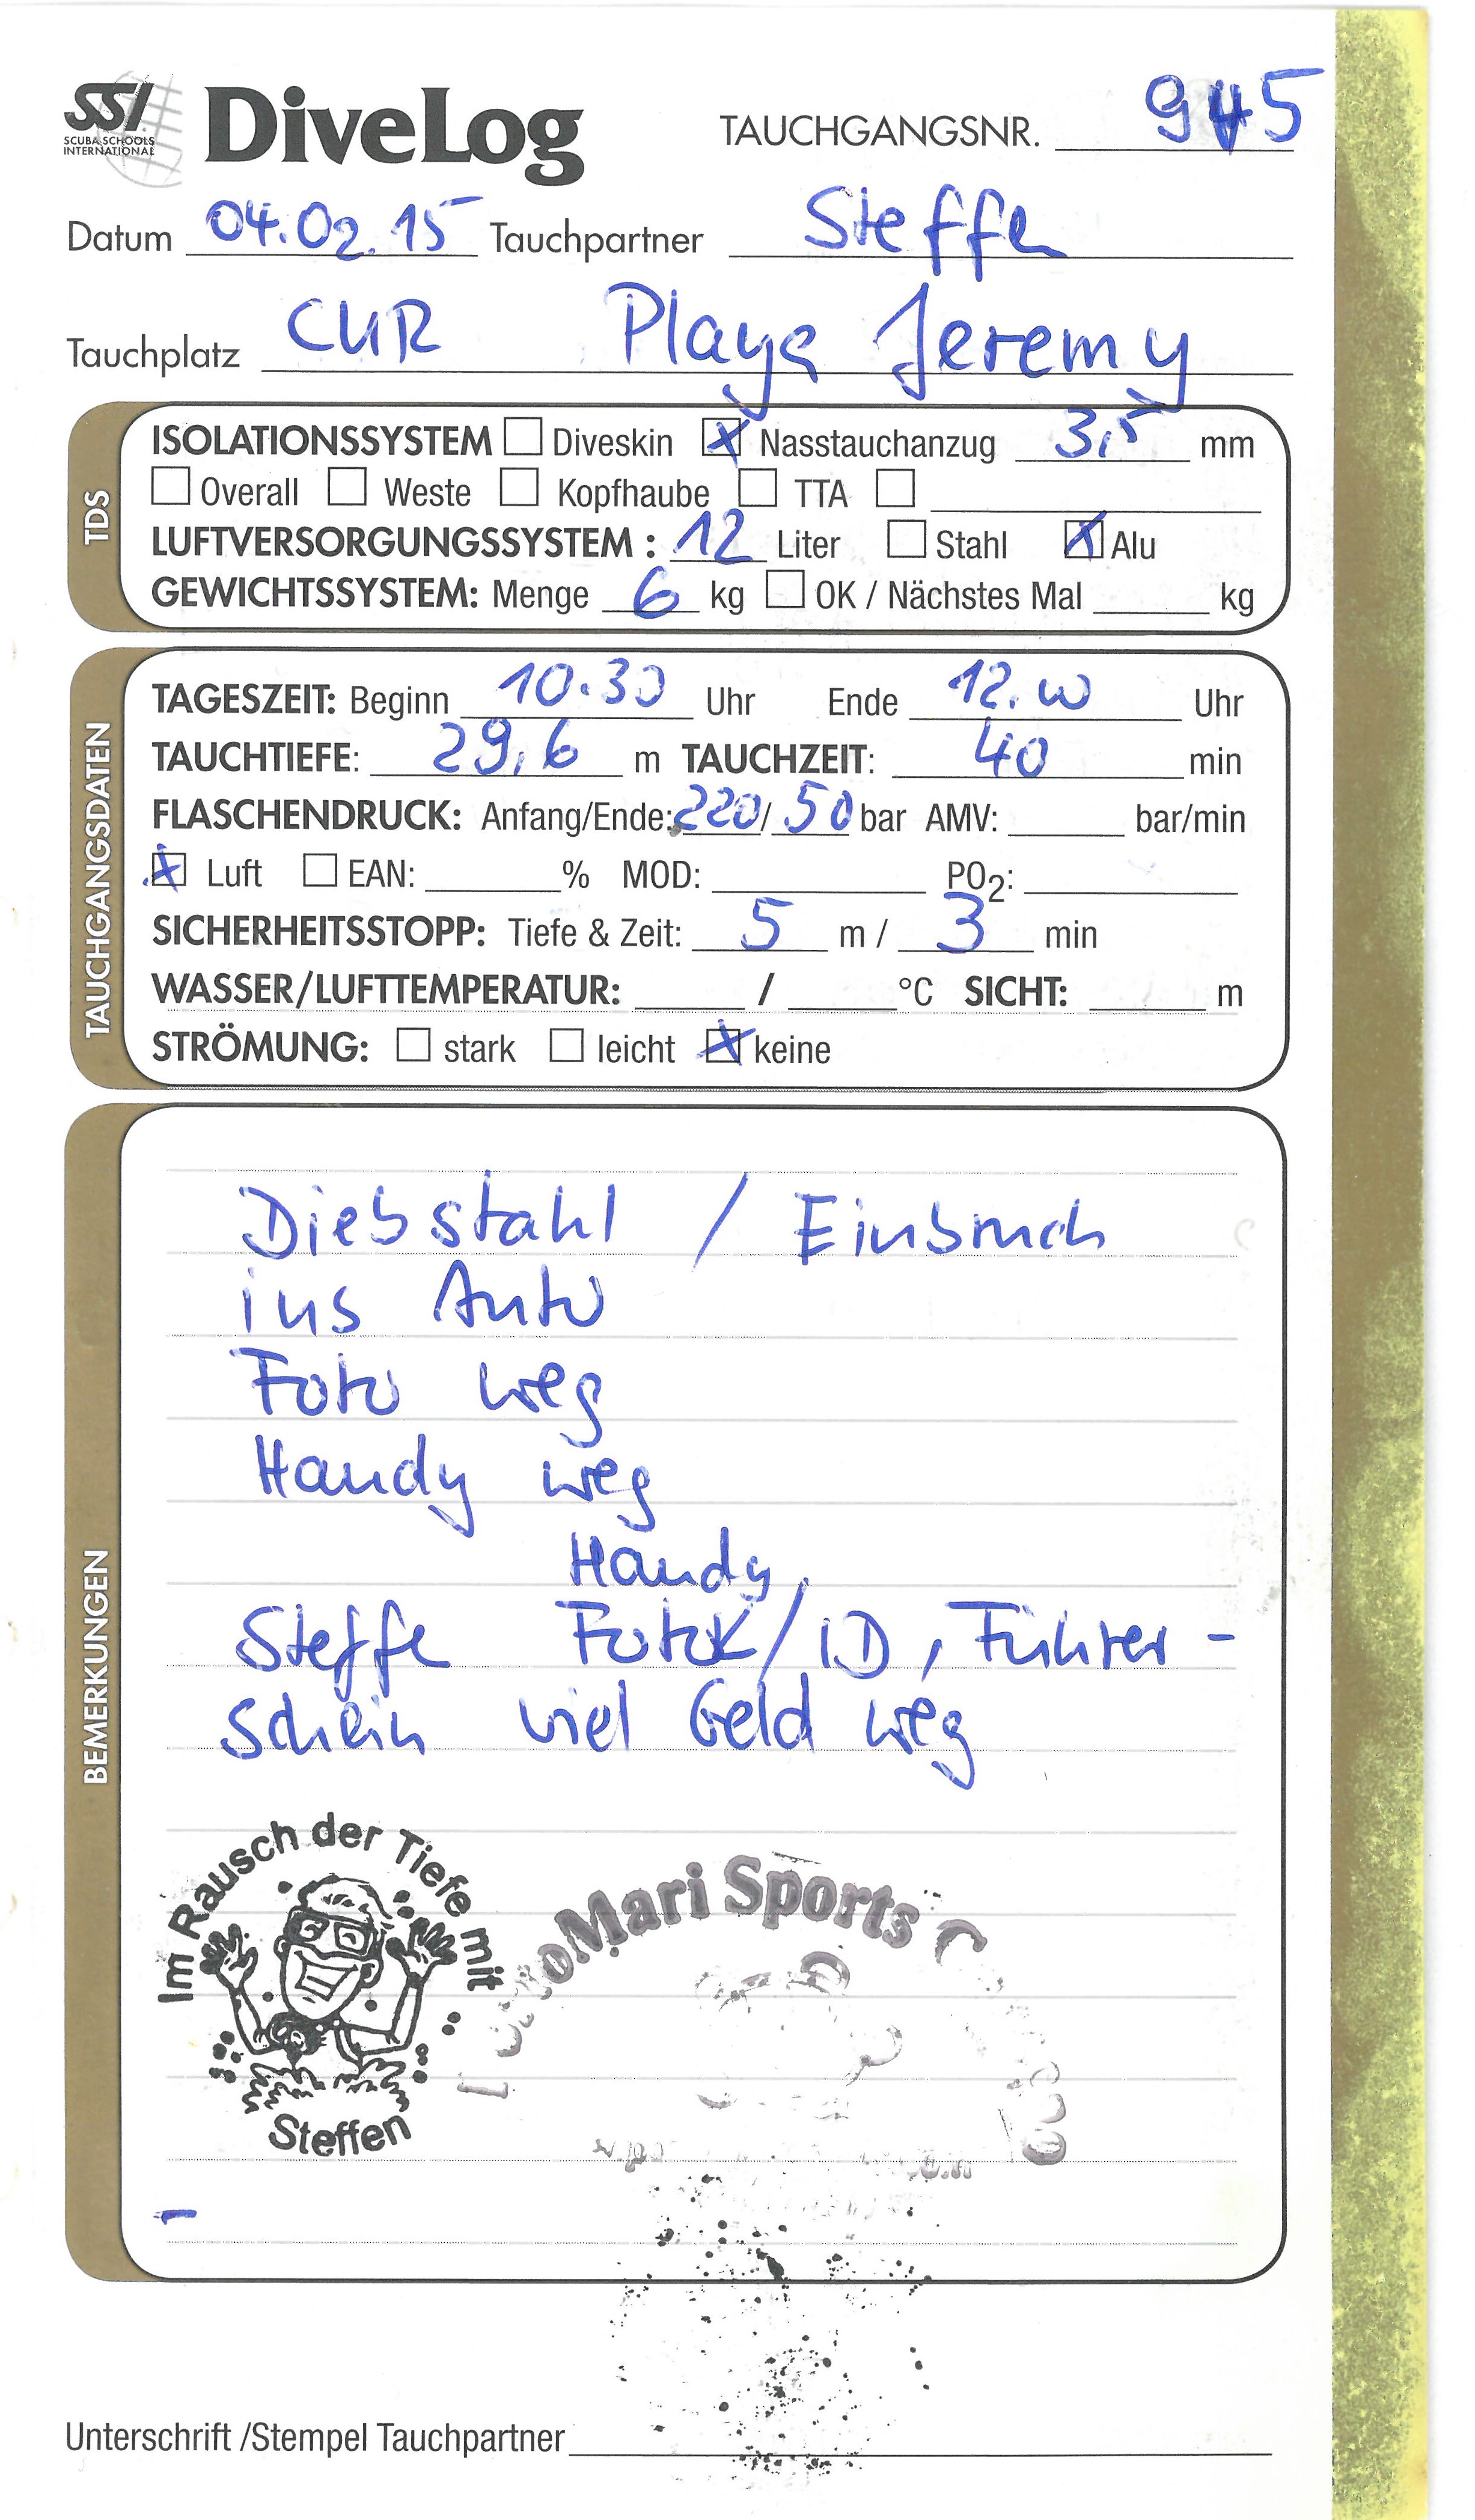 SSI SCUBA SCHOOLS INTERNATIONAL DiveLog TAUCHGANGSNR. 945
Datum 04.02.15 Tauchpartner Steffe
Tauchplatz CUR Playa Jeremy
TDS
ISOLATIONSSYSTEM Diveskin X Nasstauchanzug 3,5 mm
Overall Weste Kopfhaube TTA
LUFTVERSORGUNGSSYSTEM : 12 Liter Stahl X Alu
GEWICHTSSYSTEM: Menge 6 kg OK / Nächstes Mal kg
TAUCHGANGSDATEN
TAGESZEIT: Beginn 10.30 Uhr Ende 12.00 Uhr
TAUCHTIEFE: 29,6 m TAUCHZEIT: 40 min
FLASCHENDRUCK: Anfang/Ende: 220 / 50 bar AMV: bar/min
X Luft EAN: % MOD: PO2:
SICHERHEITSSTOPP: Tiefe & Zeit: 5 m / 3 min
WASSER/LUFTTEMPERATUR: / °C SICHT: m
STRÖMUNG: stark leicht X keine
BEMERKUNGEN
Diebstahl / Einbruch
ins Auto
Foto weg
Handy weg
Handy,
Steffe Fotok/ID, Führer-
schein viel Geld weg
Im Rausch der Tiefe mit
Steffen
PortoMari Sports
Unterschrift /Stempel Tauchpartner